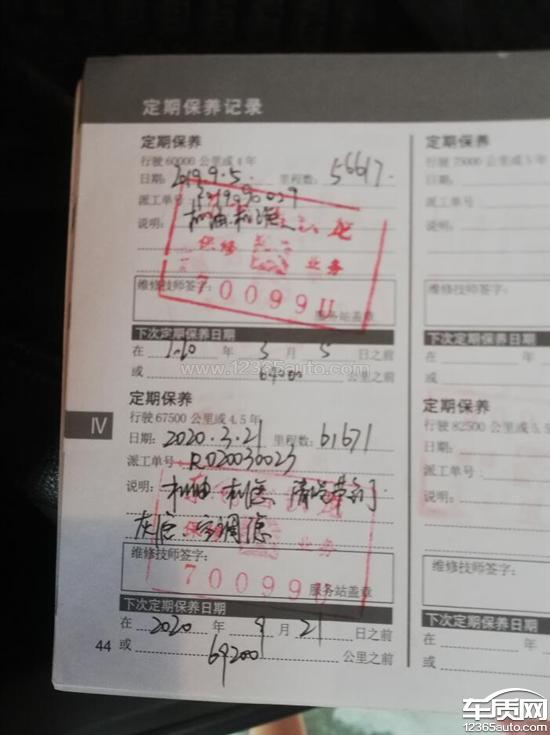 定期保养记录
定期保养
行驶60000公里或4年
日期: 2019.9.5. 里程数: 56617.
派工单号:
说明: 机油 机滤
保修 业务
70099
维修技师签字:
服务站盖章
下次定期保养日期
在 年 3 月 5 日之前
或 64000 公里之前
定期保养
行驶67500公里或4.5年
日期: 2020.3.21 里程数: 61671
派工单号: R020030023
说明: 机油 机滤 清洗节气门
灰滤 空调滤
业务
维修技师签字:
70099
服务站盖章
下次定期保养日期
在 2020 年 9 月 21 日之前
或 69200 公里之前
44
IV
定期保养
行驶75000公里或5年
日期:
派工单号:
说明:
维修技师签字:
下次定期保养
在
或
定期保养
行驶82500公里或5.5
日期:
派工单号:
说明:
维修技师签字:
下次定期保养
在
或
www.12365auto.com
车质网
12365auto.com